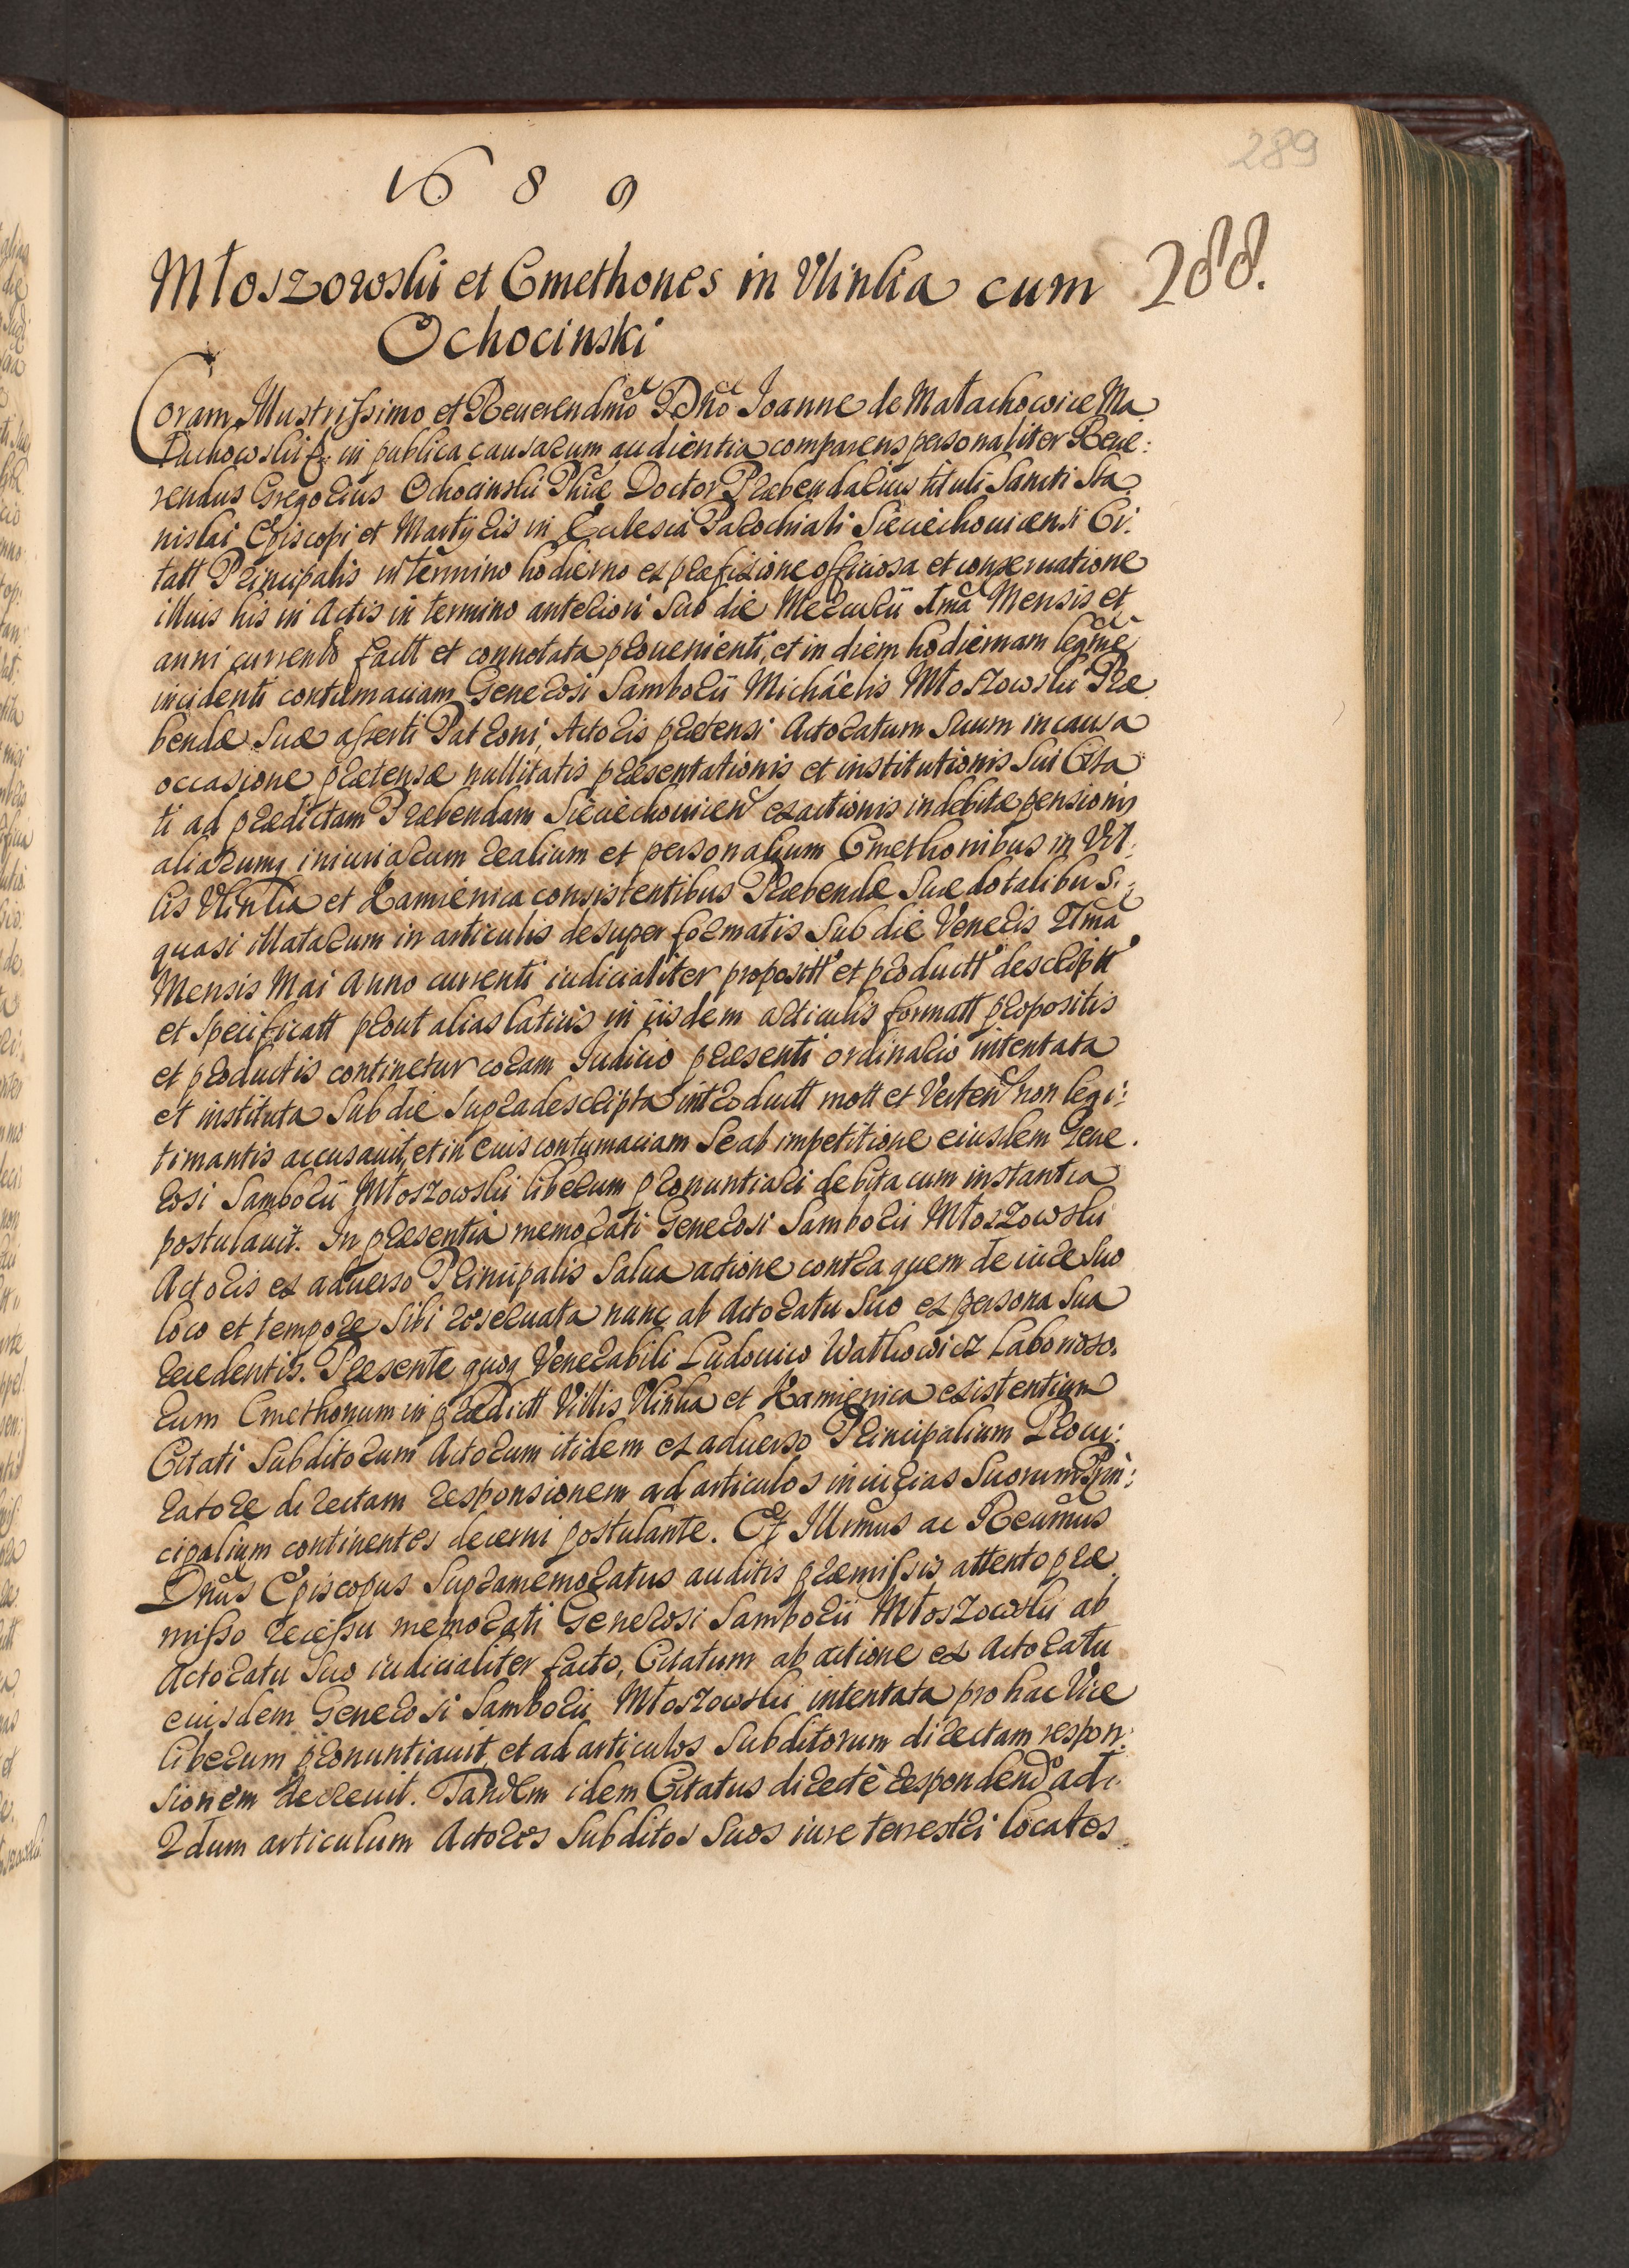 289
1689
288.
Młoszowski et Cmethones in Ulinka cum
Ochocinski
Coram Illustrissimo et Reuerendmo Dno Joanne de Małachowice Ma
łachowski &. in publica causarum audientia comparens personaliter Reue:
rendus Gregorius Ochocinski Phiæ Doctor Præbendarius tituli Sancti Sta
nislai Episcopi et Martyris in Ecclesia Parochiali Sieciechouicensi Ci:
tatt Principalis in termino hodierno ex præfixione officiosa et conseruatione
illius his in Actis in termino anteriori sub die Mercurii 1ma Mensis et
anni currentis factt et connotata prouenienti, et in diem hodiernam legme
incidenti contumaciam Generosi Samborii Michaelis Młoszowski Præ
bendæ suæ asserti Patroni, Actoris prætensi Actoratum suum in causa
occasione prætensæ nullitatis præsentationis et institutionis sui Cita
ti ad prædictam Præbendam Sieciechouicen exactionis indebitæ pensionis
aliarumq iniuriarum realium et personalium Cmethonibus in Vil:
lis Ulinka et Kamienica consistentibus Præbendæ suæ dotalibus:
quasi illatarum in articulis desuper formatis sub die Veneris
Mensis Mai Anno currenti iudicialiter propositt et productt descriptt
et specificatt prout alias latius in iisdem articulis formatt propositis
et productis continetur coram Iudicio præsenti ordinario intentata
et instituta sub die supradescripta introductt mott et Verten non legi:
timantis accusauit, et in euis contumaciam se ab impetitione eiusdem Gene
rosi Samborii Młoszowski liberum pronuntiari debita cum instantia
postulauit. In præsentia memorati Generosi Samborii Młoszowski
Actoris ex aduerso Principalis salua actione contra quem de iure suo
loco et tempore sibi reseruata nunc ab Actoratu suo ex persona sua
recedentis. Præsente quoq Venerabili Ludouico Watkowicz Laborioso
rum Cmethonum in prædictt Villis Ulinka et Kamienica existentium
Citati Subditorum Actorum itidem ex aduerso Principalium Procu:
ratore directam responsionem ad articulos iniurias suorum Prin:
cipalium continentes decerni postulante. Et Illrmus ac Reumus
Dnus Episcopus supramemoratus auditis præmissis attento præ
misso recessu memorati Generosi Samborii Młoszowski ab
Actoratu suo iudicialiter facto, Citatum ab actione ex Actoratu
euisdem Generosi Samborii Młoszowski intentata pro hac Vice
liberum pronuntiauit, et ad articulos Subditorum directam respon:
sionem decreuit. Tandem idem Citatus directè respondendo ad
2dum articulum Actores Subditos suos iure terrestri locatos